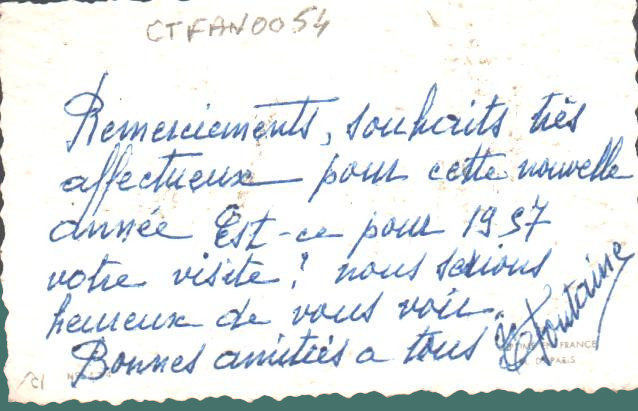 CTFAN0054
Remerciements, souhaits très
affectueux pour cette nouvelle
année Est-ce pour 1957
votre visite? nous serions
heureux de vous voir.
Bonnes amitiés a tous
Fontaine
FRANCE
PARIS